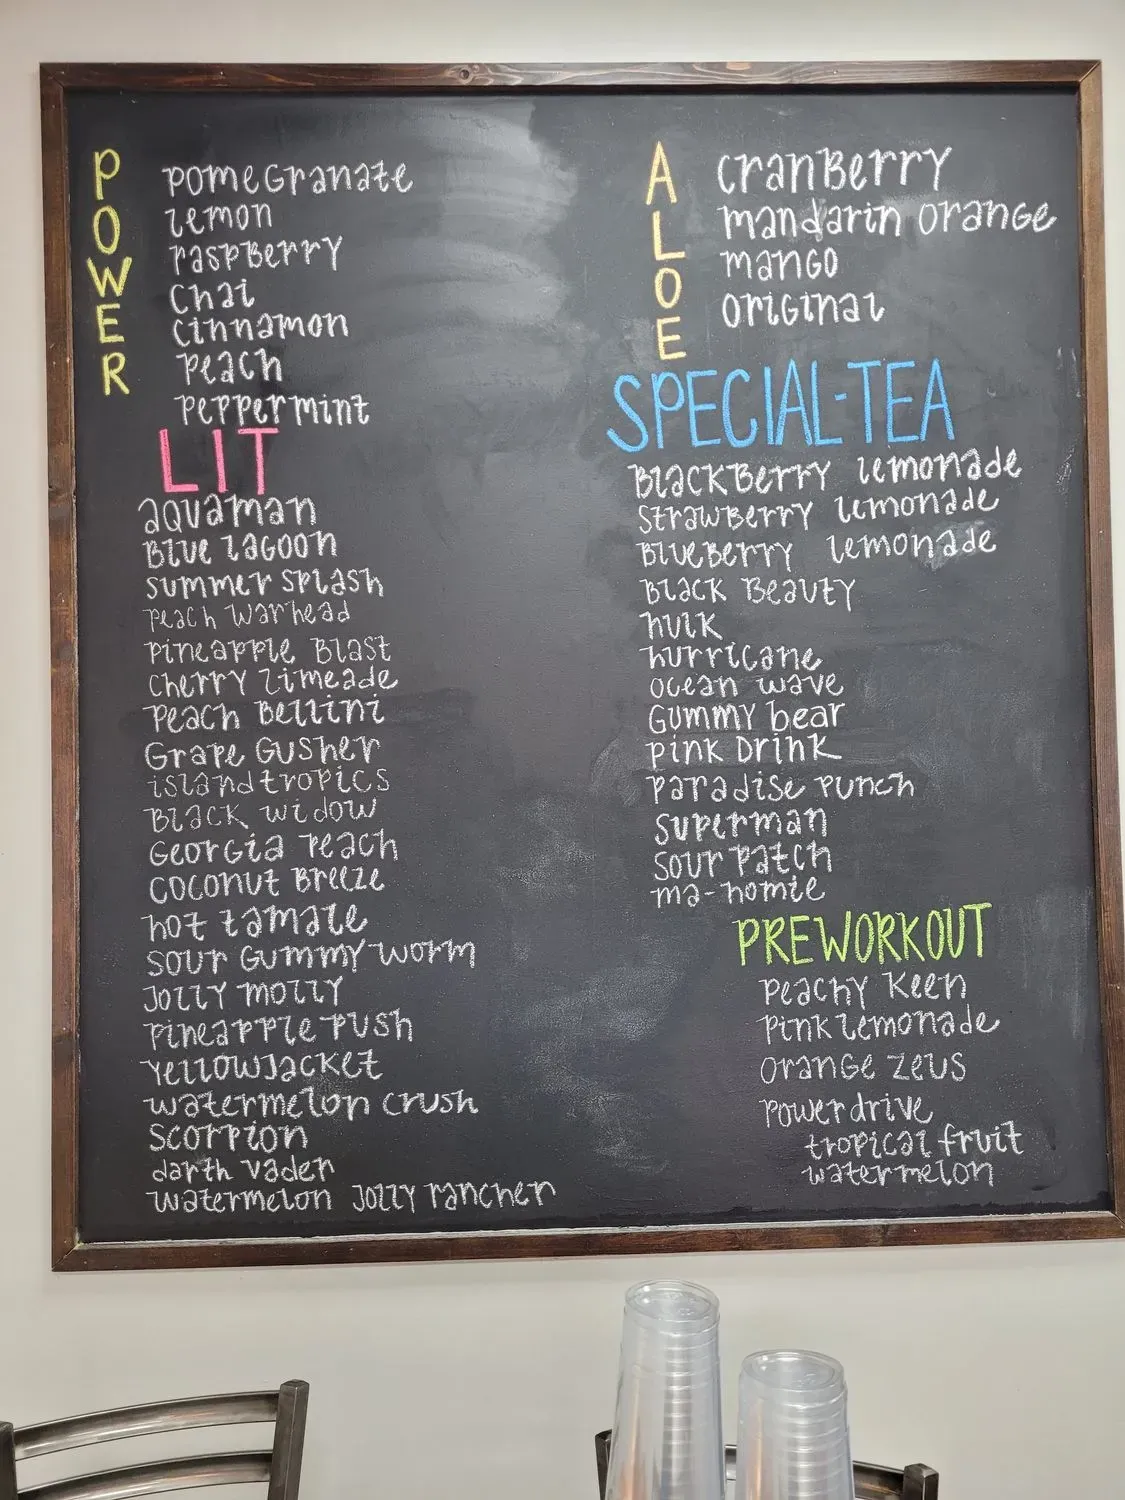 POWER
Pomegranate
lemon
raspberry
Chai
Cinnamon
Peach
Peppermint
LIT
aquaman
Blue lagoon
summer splash
Peach warhead
Pineapple Blast
cherry limeade
Peach Bellini
Grape Gusher
island tropics
Black widow
Georgia Peach
coconut Breeze
hot tamale
sour Gummy worm
Jolly molly
Pineapple Push
Yellowjacket
watermelon crush
Scorpion
darth vader
watermelon Jolly rancher
ALOE
CranBerry
mandarin orange
mango
original
SPECIAL-TEA
BlackBerry lemonade
StrawBerry lemonade
BlueBerry lemonade
Black Beauty
hulk
hurricane
ocean wave
Gummy bear
Pink Drink
Paradise Punch
Superman
Sour Patch
ma-homie
PREWORKOUT
Peachy Keen
Pink lemonade
Orange Zeus
Powerdrive
tropical fruit
watermelon